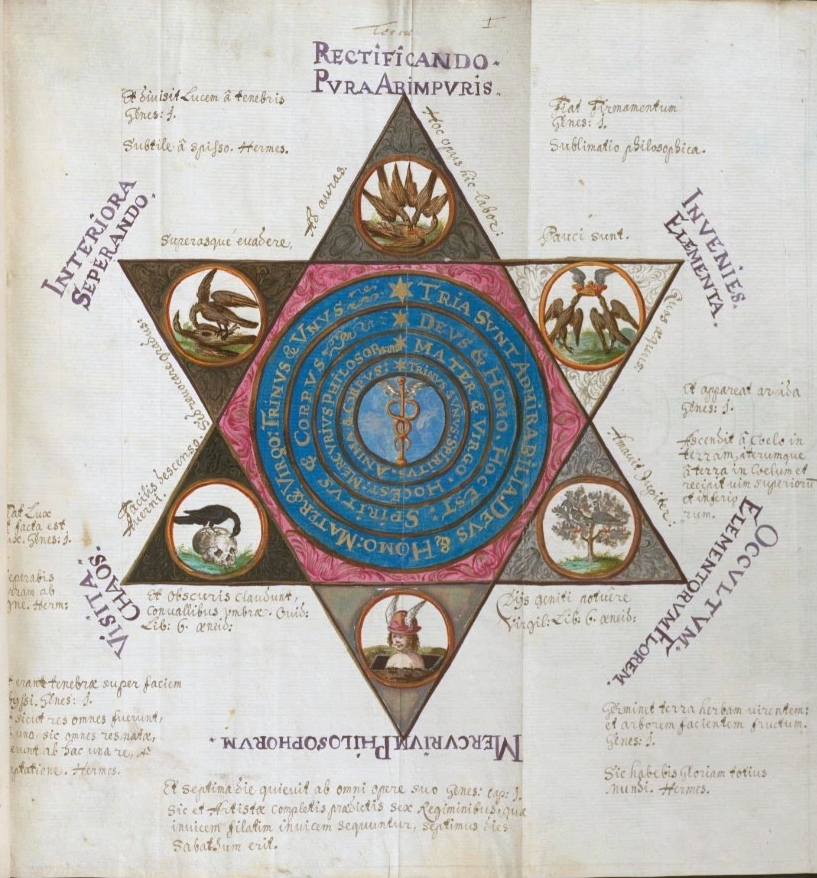 I
RECTIFICANDO.
PVRA AB IMPVRIS.
Et divisit Lucem â tenebris
Genes: J.
Subtile â spisso. Hermes.
Fiat Firmamentum
Genes: J.
Sublimatio philosophica.
Ad auras.
Hoc opus hic labor.
INTERIORA
SEPERANDO.
Superasque evadere,
Pauci sunt.
INVENIES.
ELEMENTA.
Sed revocare gradus:
Quos æquus.
TRIA SUNT ADMIRABILIA. DEVS & HOMO: MATER & VIRGO: TRINUS & VNUS.
DEVS & HOMO. HOC EST: SPIRITVS & CORPVS
MATER & VIRGO. HOC EST: MERCVRIVS PHILOSOPHORUM
TRINUS & VNUS: SPIRITVS, ANIMA & CORPVS:
Et appareat arida
Genes: J.
Ascendit â Coelo in
terram, iterumque
â terra in Coelum et
recipit vim superioru
et inferio
rum.
Facilis descensus
Averni.
Amavit Jupiter.
Lux
facta est
Genes: J.
Seperabis
terram ab
igne. Herm:
VISITA
CHAOS.
OCCVLTVM.
ELEMENTORVM FLOREM.
Et obscuris claudunt,
convallibus vmbræ. Ovid:
Lib: 6. æneid:
Dijs geniti potuere
Virgil: Lib: 6. æneid:
erant tenebræ super faciem
Genes: J.
sicut res omnes fuerunt,
uno, sic omnes res natæ,
ab hac una re,
Hermes.
MERCVRIVM PHILOSOPHORVM.
Germinet terra herbam virentem:
et arborem facientem fructum.
Genes: J.
Sic habebis Gloriam totius
Mundi. Hermes.
Et septima die quievit ab omni opere suo Genes: cap: J.
Sic et Artistæ completis prædictis sex Regiminibus, quæ
invicem filatim invicem sequuntur, septimus dies
Sabathum erit.